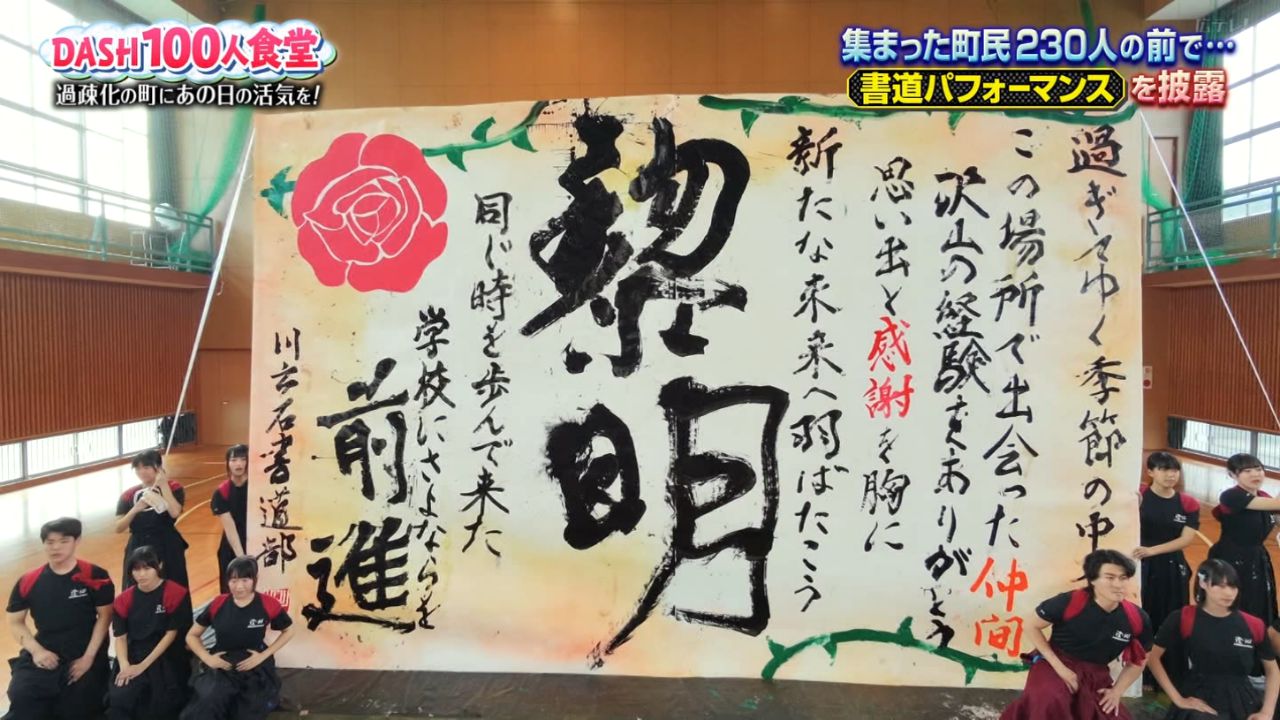 DASH100人食堂
過疎化の町にあの日の活気を!
集まった町民230人の前で…
書道パフォーマンスを披露
過ぎてゆく季節の中
この場所で出会った仲間
沢山の経験をありがとう
思い出と感謝を胸に
新たな未来へ羽ばたこう
黎明
同じ時を歩んで来た
学校にさよならを
前進
川之石書道部